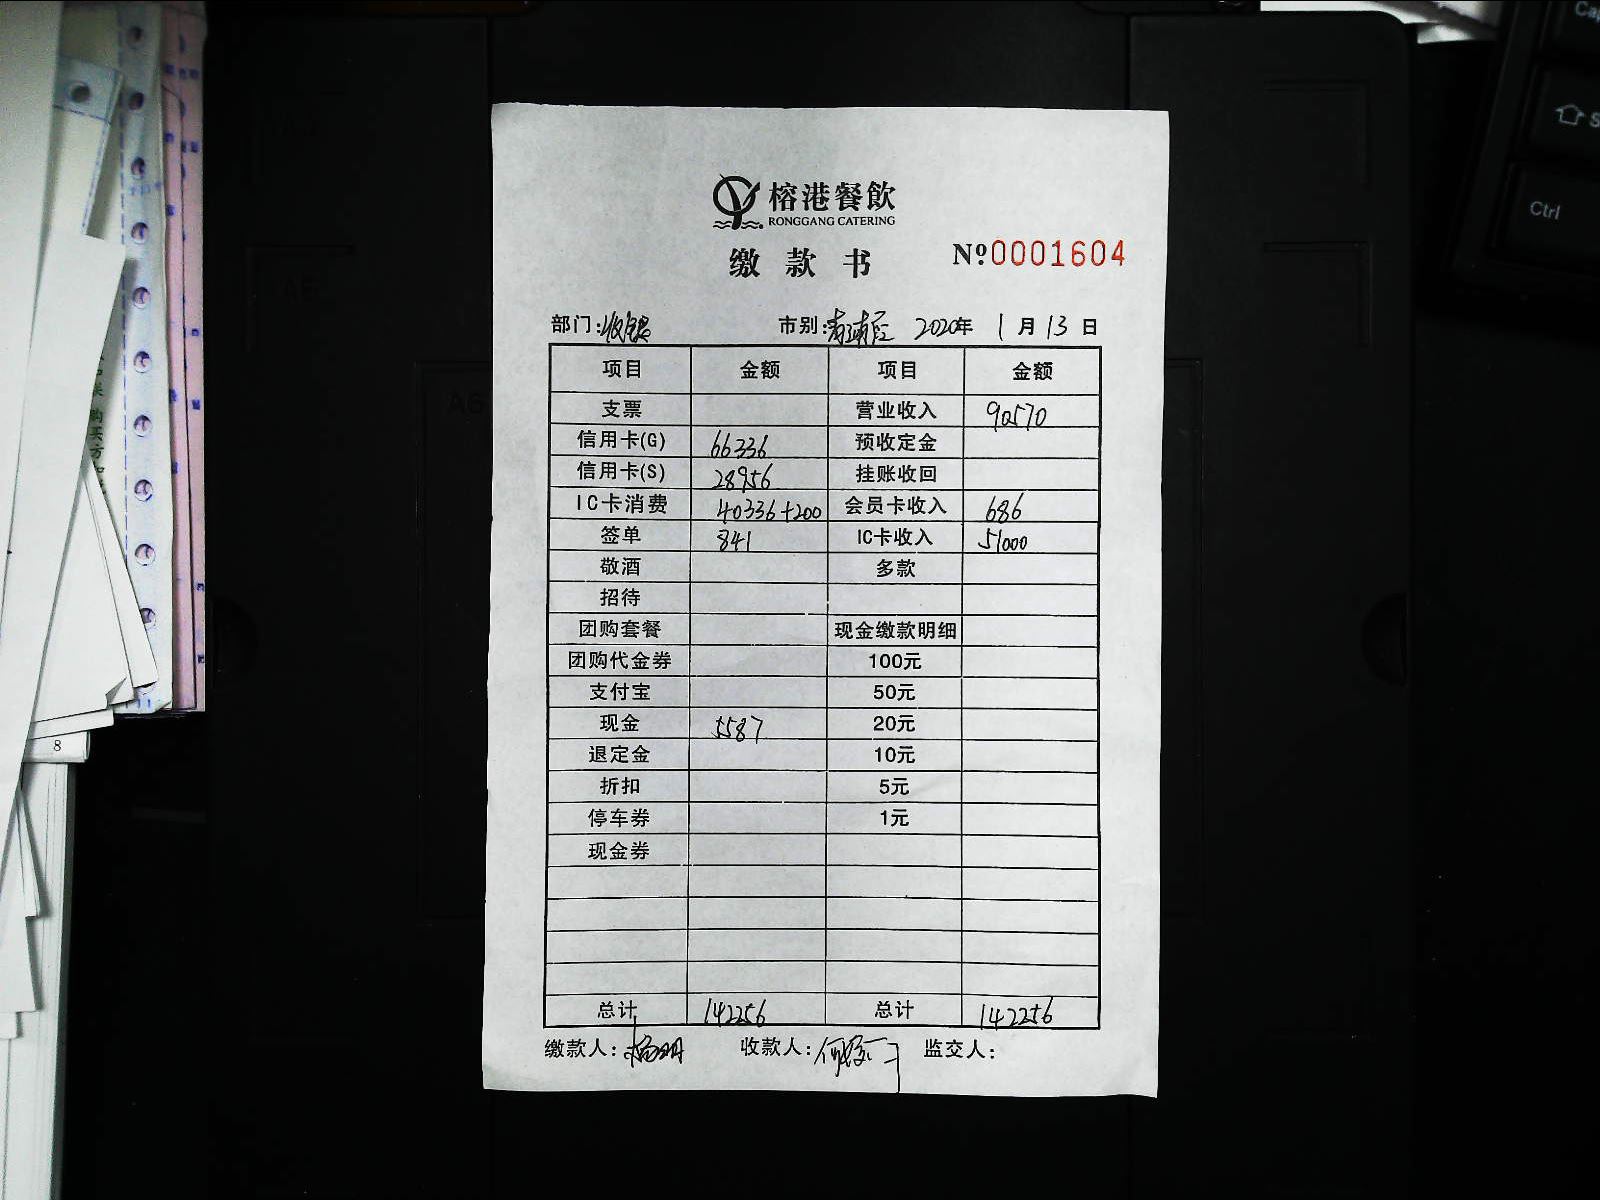 榕港餐飲
RONGGANG CATERING
缴款书 Nº0001604
部门:收银 市别: 2020年 1月13日
项目 金额 项目 金额
支票 营业收入 90570
信用卡(G) 66336 预收定金
信用卡(S) 28956 挂账收回
IC卡消费 40336+200 会员卡收入 686
签单 841 IC卡收入 51000
敬酒 多款
招待
团购套餐 现金缴款明细
团购代金券 100元
支付宝 50元
现金 5587 20元
退定金 10元
折扣 5元
停车券 1元
现金券
总计 142256 总计 142256
缴款人: 收款人: 监交人:
Ctrl
A6
8